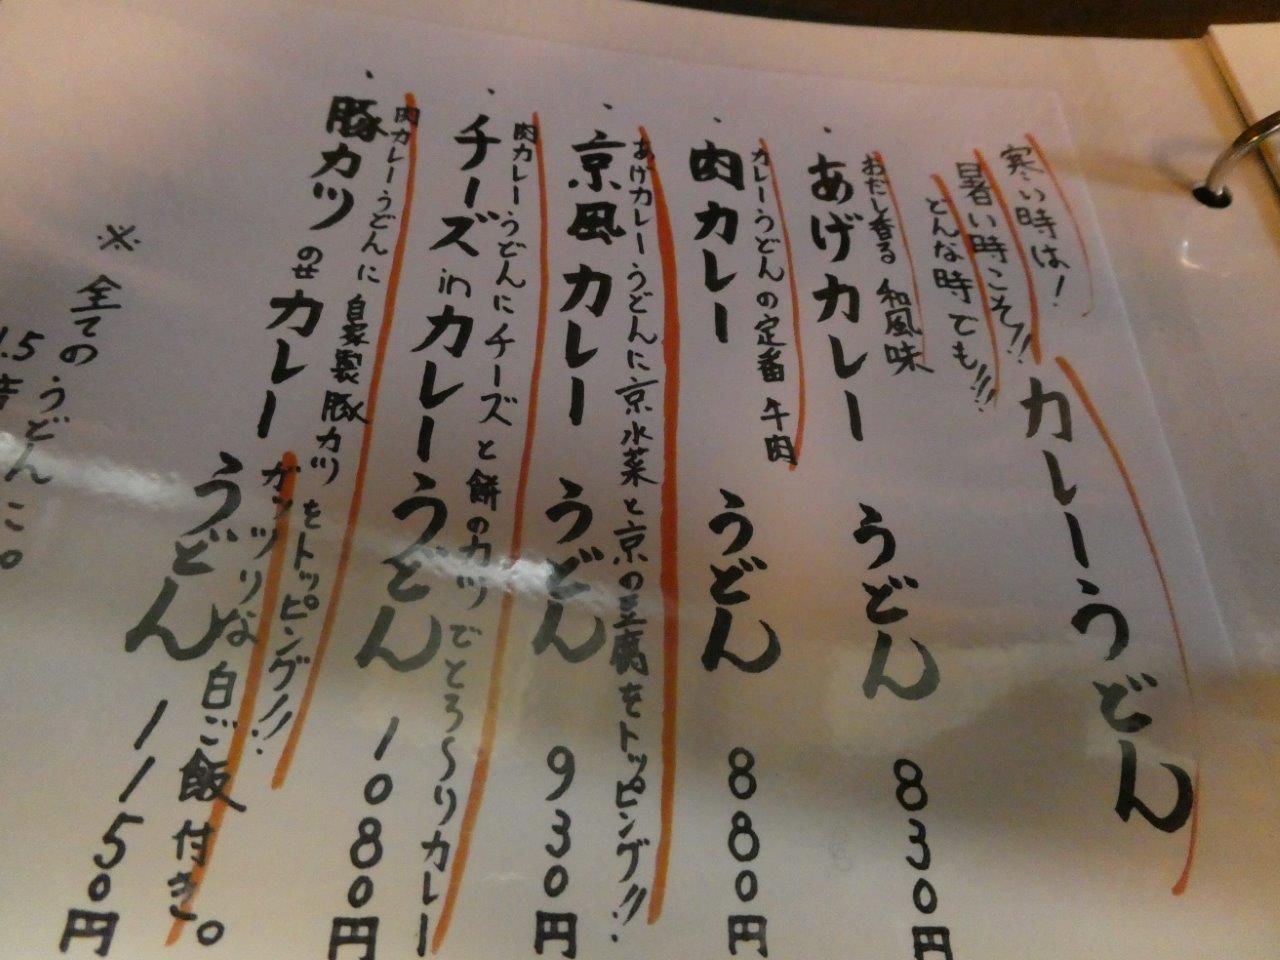 寒い時は!
暑い時こそ!!
どんな時でも!!
カレーうどん
おだし香る 和風味
・あげカレーうどん 830円
カレーうどんの定番 牛肉
・肉カレーうどん 880円
あげカレーうどんに京水菜と京の豆腐をトッピング!!
・京風カレーうどん 930円
肉カレーうどんにチーズと餅のカツでとろ〜りカレー
・チーズinカレーうどん 1080円
肉カレーうどんに自家製豚カツをトッピング!!
ガッツリな白ご飯付き。
・豚カツのせカレーうどん 1150円
※全てのうどんこ。
1.5